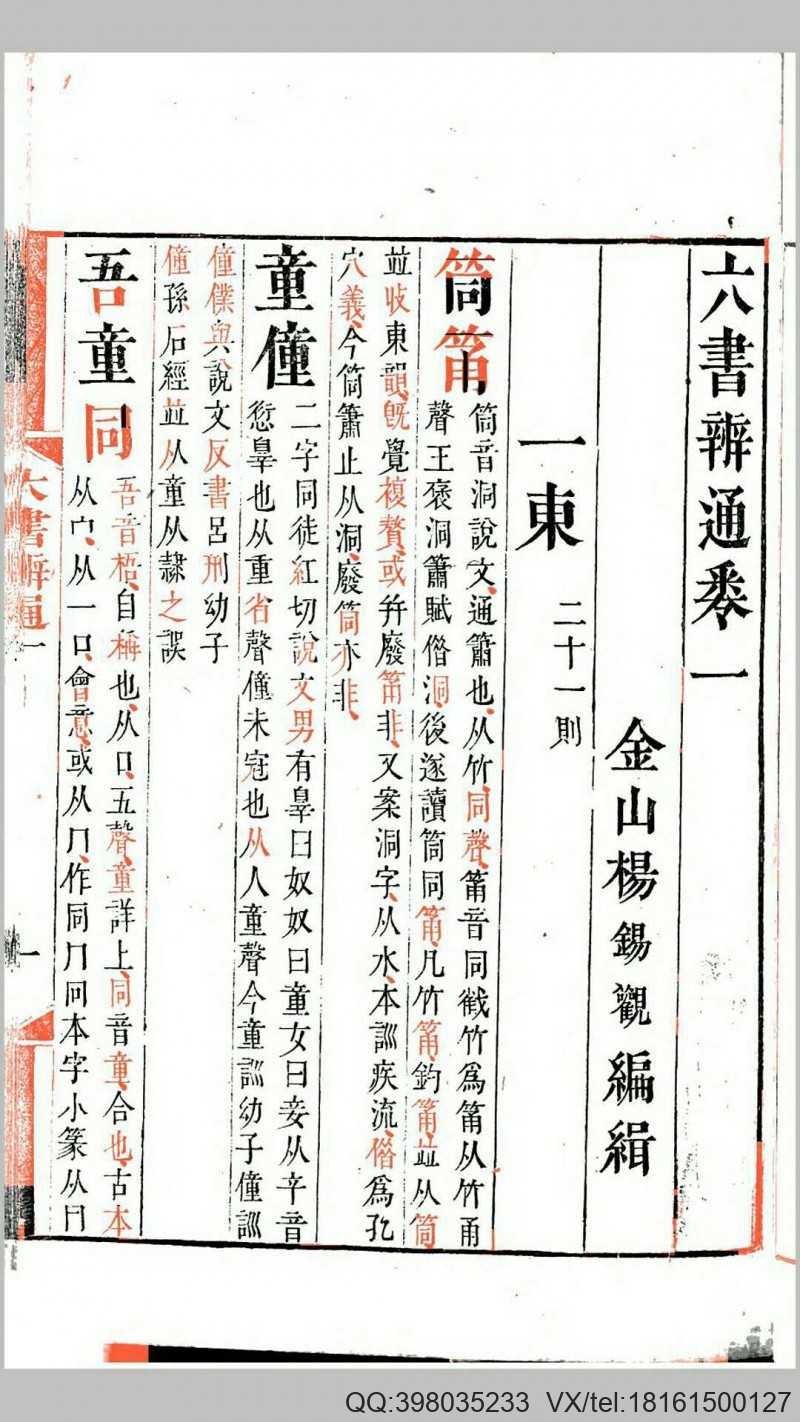 六書辨通卷一
金山楊錫觀編緝
一東 二十一則
筒筩
筒音洞說文通簫也从竹同聲筩音同截竹為筩从竹甬
聲王褒洞簫賦偺洞後遂讀筒同筩凡竹筩釣筩並从筒
並收東韻旣覺複贅或并廢筩非又案洞字从水本訓疾流偺為孔
穴義今筒簫止从洞廢筒亦非
童僮
二字同徒紅切說文男有辠曰奴奴曰童女曰妾从辛音
愆辠也从重省聲僮未冠也从人童聲今童訓幼子僮訓
僮僕與說文反書呂刑幼子
僮孫石經並从童从隷之誤
吾童同
吾音梧自稱也从口五聲童詳上同音童合也古本
从冖从一口會意或从冂作同冂冋本字小篆从冃
六書辨通 一
一
QQ:398035233 VX/tel:18161500127